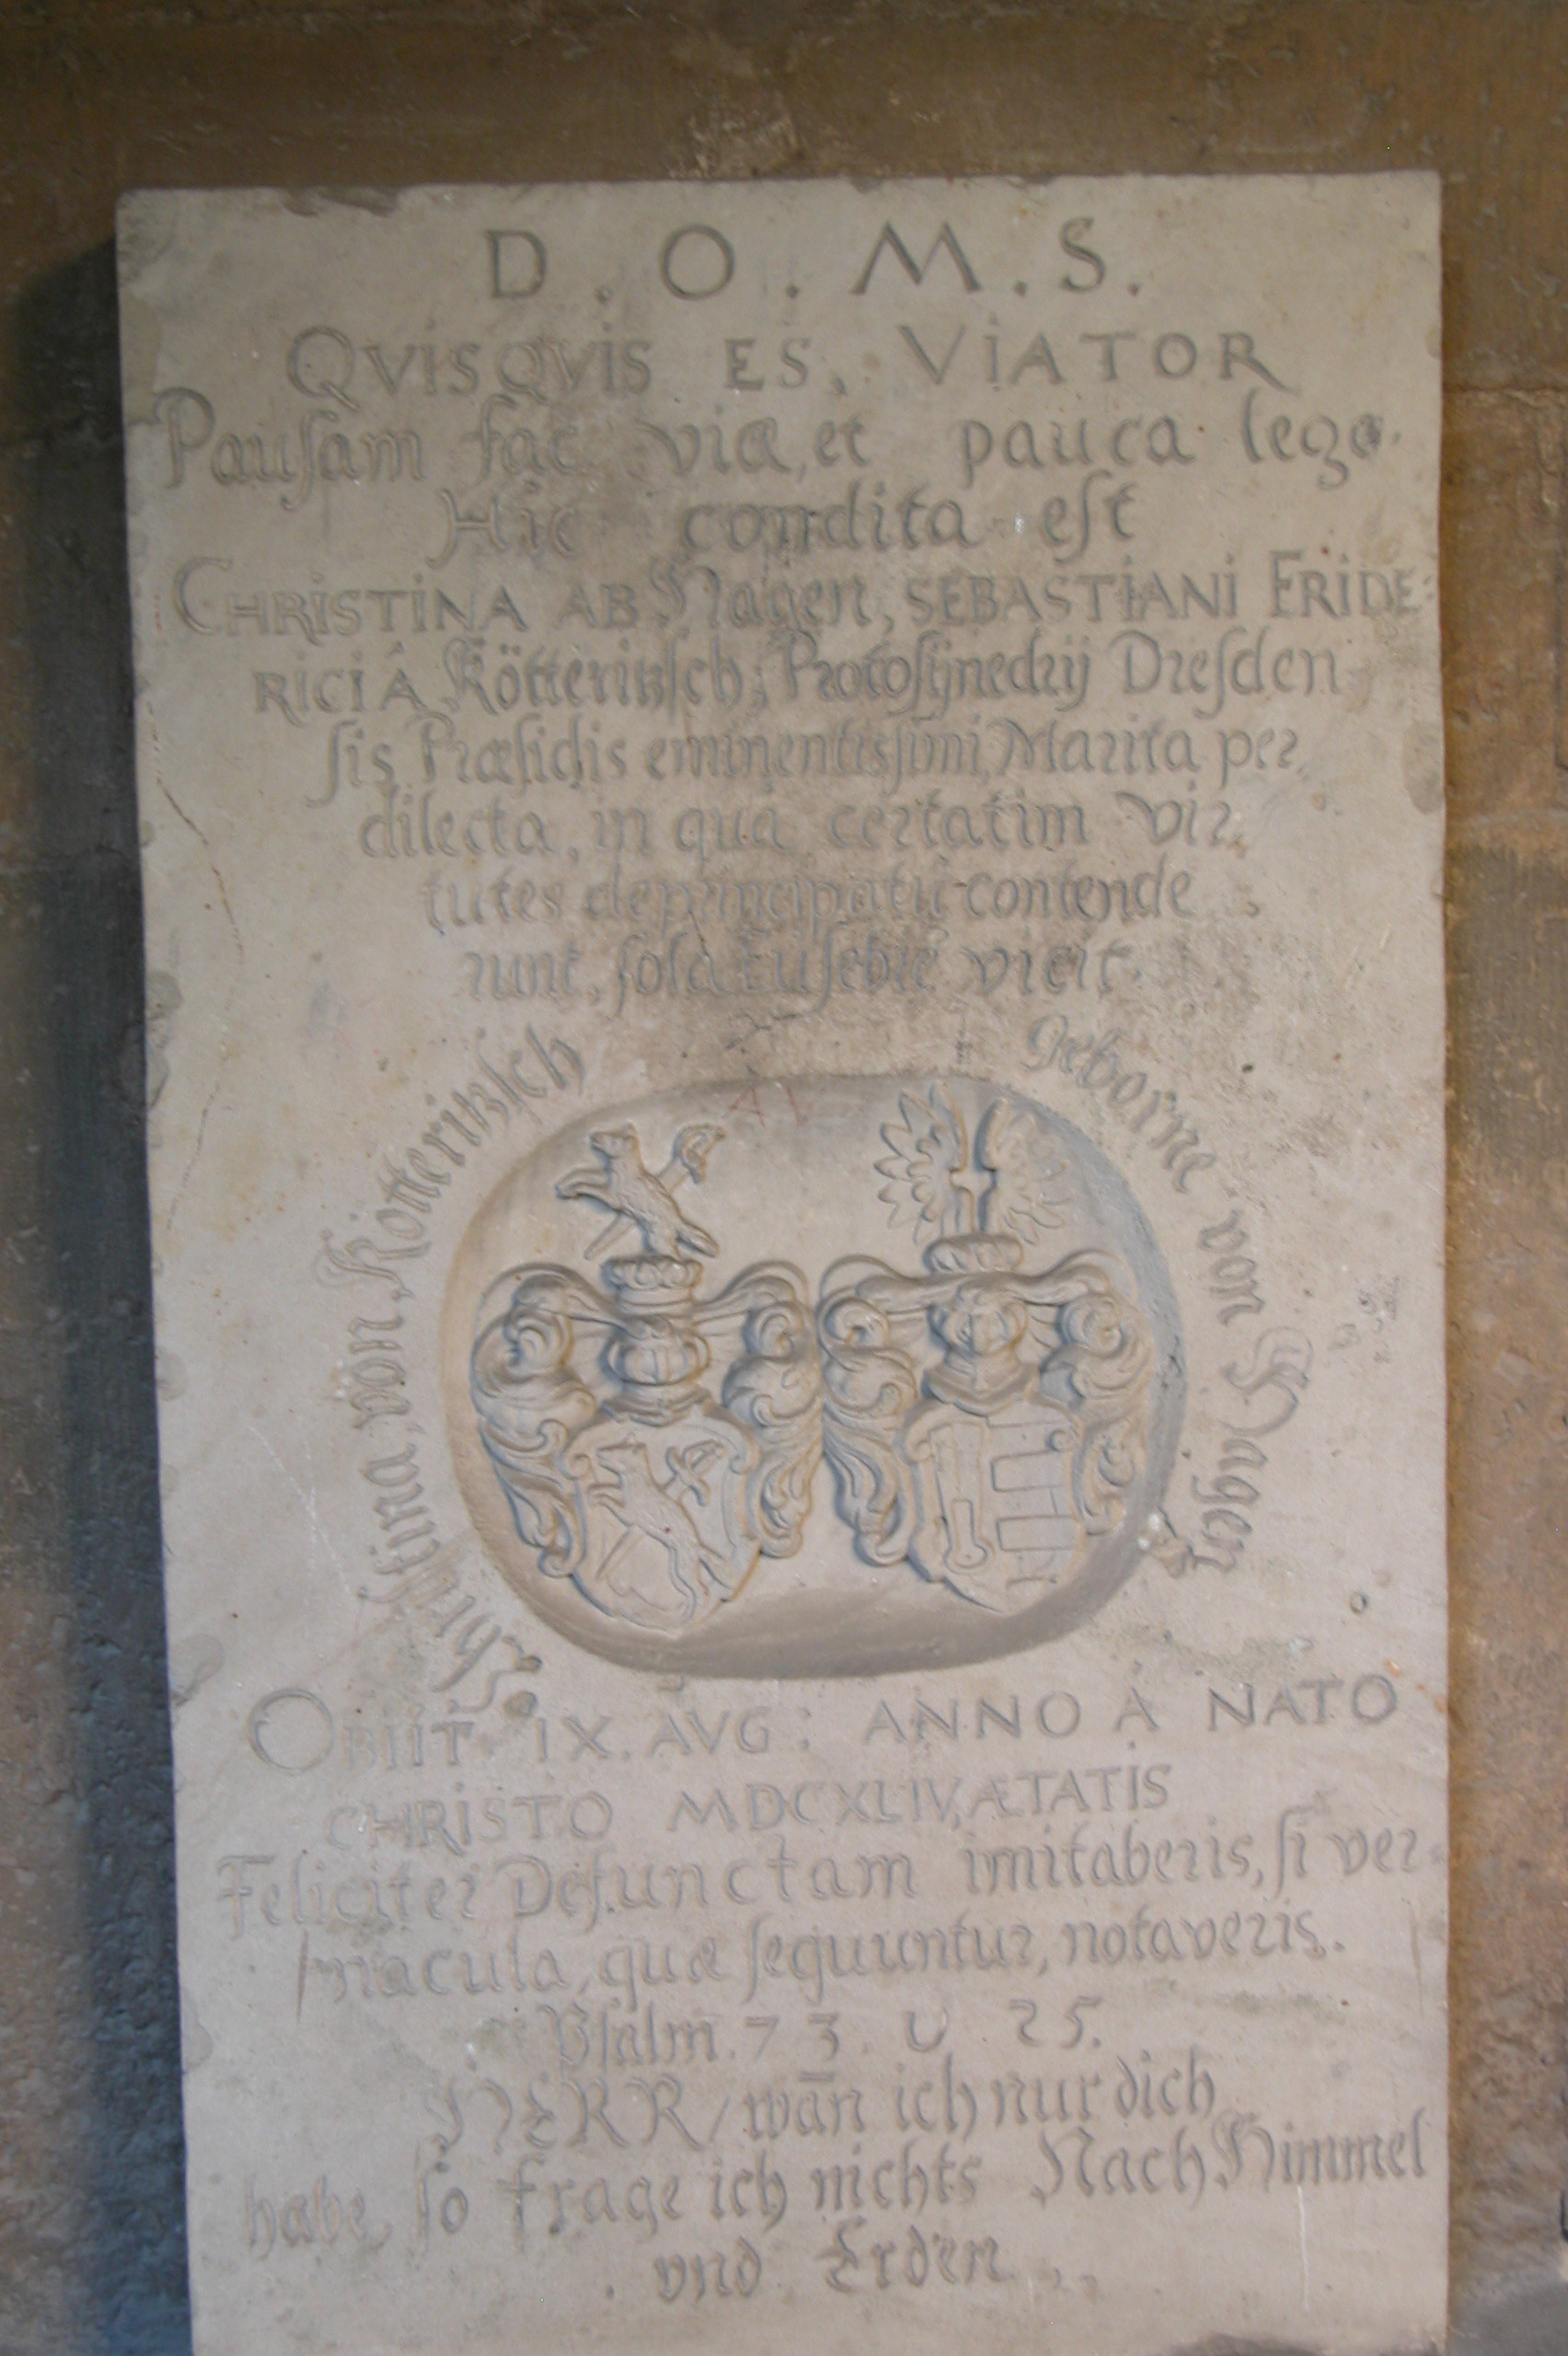 D . O . M . S .
QVISQVIS ES, VIATOR
Pauſam fac viæ, et pauca lege.
Hic condita eſt
CHRISTINA AB Hagen, SEBASTIANI FRIDE:
RICI Á Kötteritzſch, Protoſynedrij Dreſden,
ſis Præſidis eminentisſimi, Marita per,
dilecta, in quâ certatim vir,
tutes de principatû contende
runt, ſola Euſebie vicit.
Chriſtina, von Kötteritzſch
geborne von Hagen
OBIIT IX. AVG: ANNO Á NATO
CHRISTO MDCXLIV, ÆTATIS
Feliciter Defunctam imitaberis, ſi ver-
nacula, quæ ſequuntur, notaveris.
Pſalm. 73. v 25.
HERR / wān ich nur dich
habe, ſo frage ich nichts Nach Himmel
vnd Erden